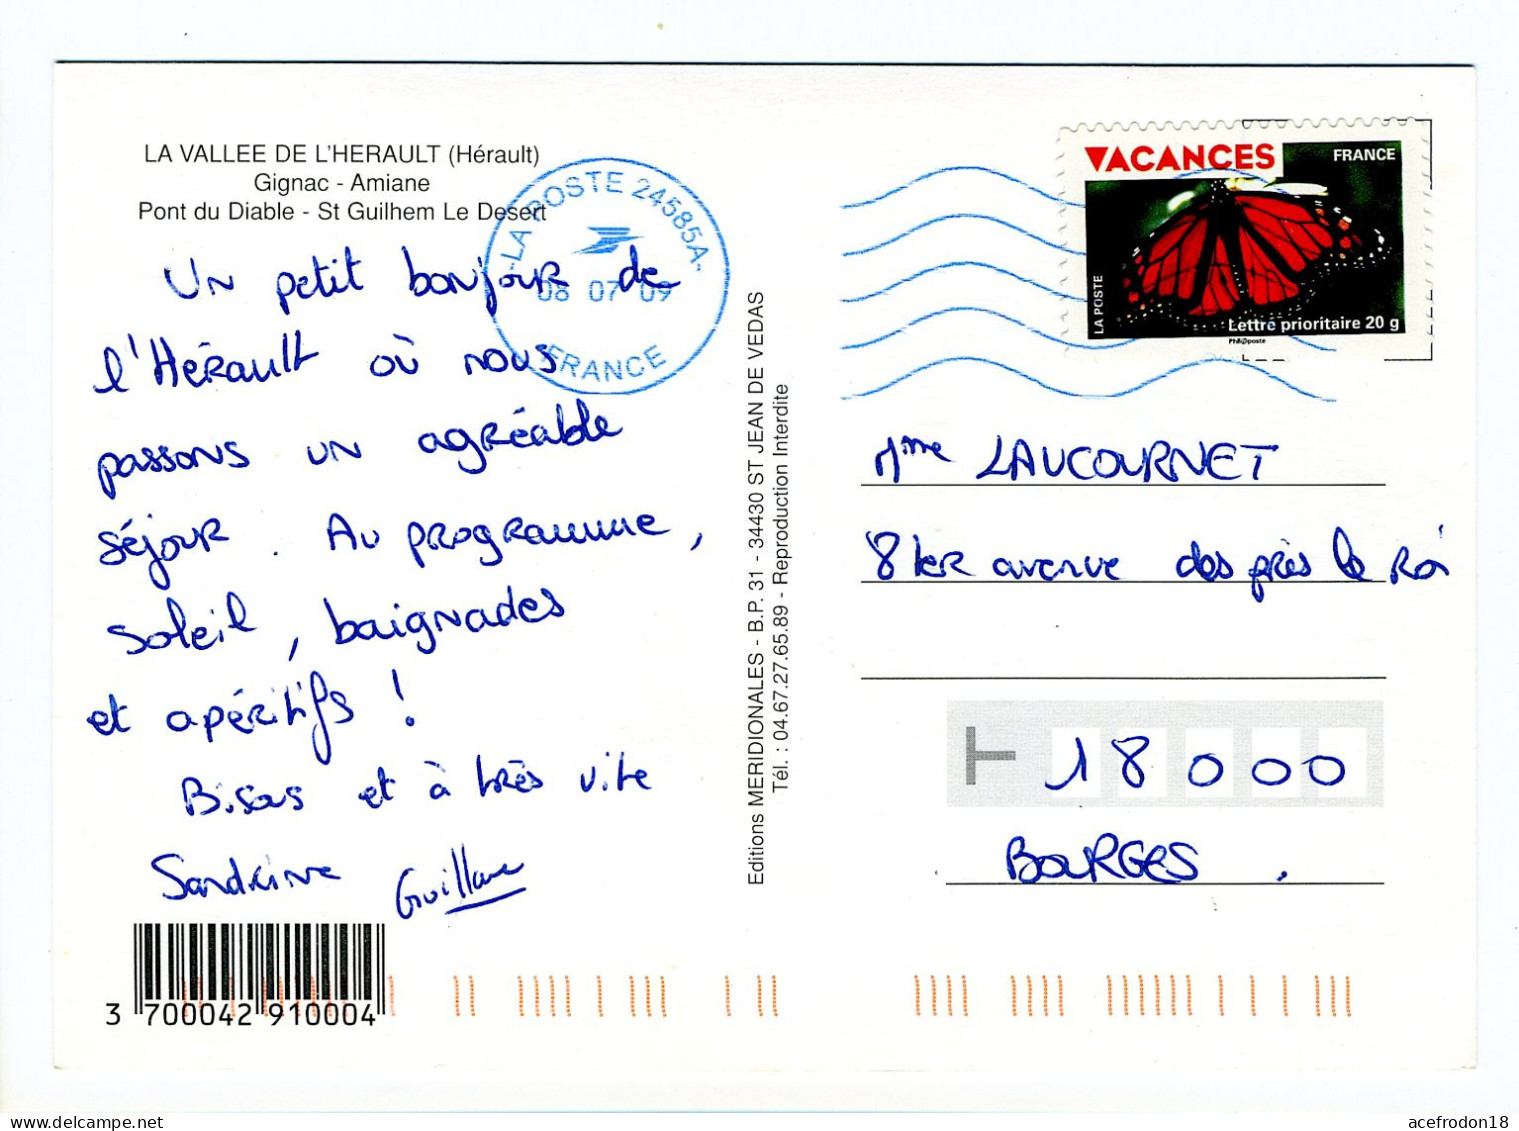 LA VALLEE DE L'HERAULT (Hérault)
Gignac - Amiane
Pont du Diable - St Guilhem Le Desert
Un petit bonjour de
l'Hérault où nous
passons un agréable
séjour. Au programme,
soleil, baignades
et apéritifs !
Bisous et à très vite
Sandrine Guillaume
LA POSTE 24585A
08 07 09
FRANCE
Editions MERIDIONALES - B.P. 31 - 34430 ST JEAN DE VEDAS
Tél. : 04.67.27.65.89 - Reproduction Interdite
VACANCES
FRANCE
LA POSTE
Lettre prioritaire 20 g
Phil@poste
Mme LAUCOURNET
8 ter avenue des près le Roi
18000
BOURGES.
3 700042 910004
acefrodon18